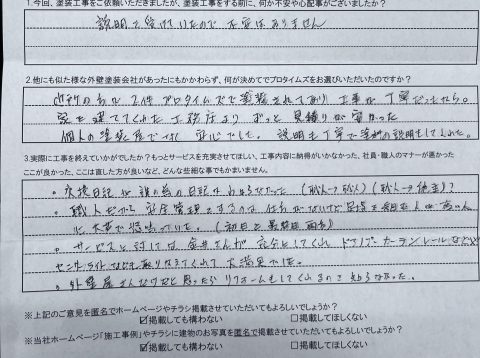 1.今回、塗装工事をご依頼いただきましたが、塗装工事をする前に、何か不安や心配事がございましたか？
説明を受けていたので不安はありません
2.他にも似た様な外壁塗装会社があったにもかかわらず、何が決めてでプロタイムズをお選びいただいたのですか？
近所の 2件プロタイムズで塗装されており 工事が丁寧だったから。
家を建ててくれた工務店より ずっと 見積りが安かった
個人の塗装屋で 安心でした。 説明も丁寧で塗料の説明もしてくれた。
3.実際に工事を終えていかがでしたか？もっとサービを充実させてほしい、工事内容に納得がいかなかった、社員・職人のマナーが悪かった
ここが良かった、ここは直した方が良いなど、どんな些細な事でもかまいません。
。交換日記が誰の為の日記かわからなかった（職人→職人）（職人→施主）？
。職人だから 安全管理をするのは 仕方がないけど足場を組む人の
大声で いた。（初日と最終日 両方）
。サービスと 対しては 金井さんが してくれ カーテンレールなど
センサーライトなども取りなえてくれて 大満足でした。
。外壁屋さんだけだと思ったら リフォームもしてくれるのを 知らなかった。
※上記のご意見を匿名でホームページやチラシ掲載させていただいてもよろしいでしょうか？
☑掲載しても構わない □掲載してほしくない
※当社ホームページ「施工事例」やチラシに建物のお写真を匿名で掲載させていただいてもよろしいでしょうか？
☑掲載しても構わない □掲載してほしくない